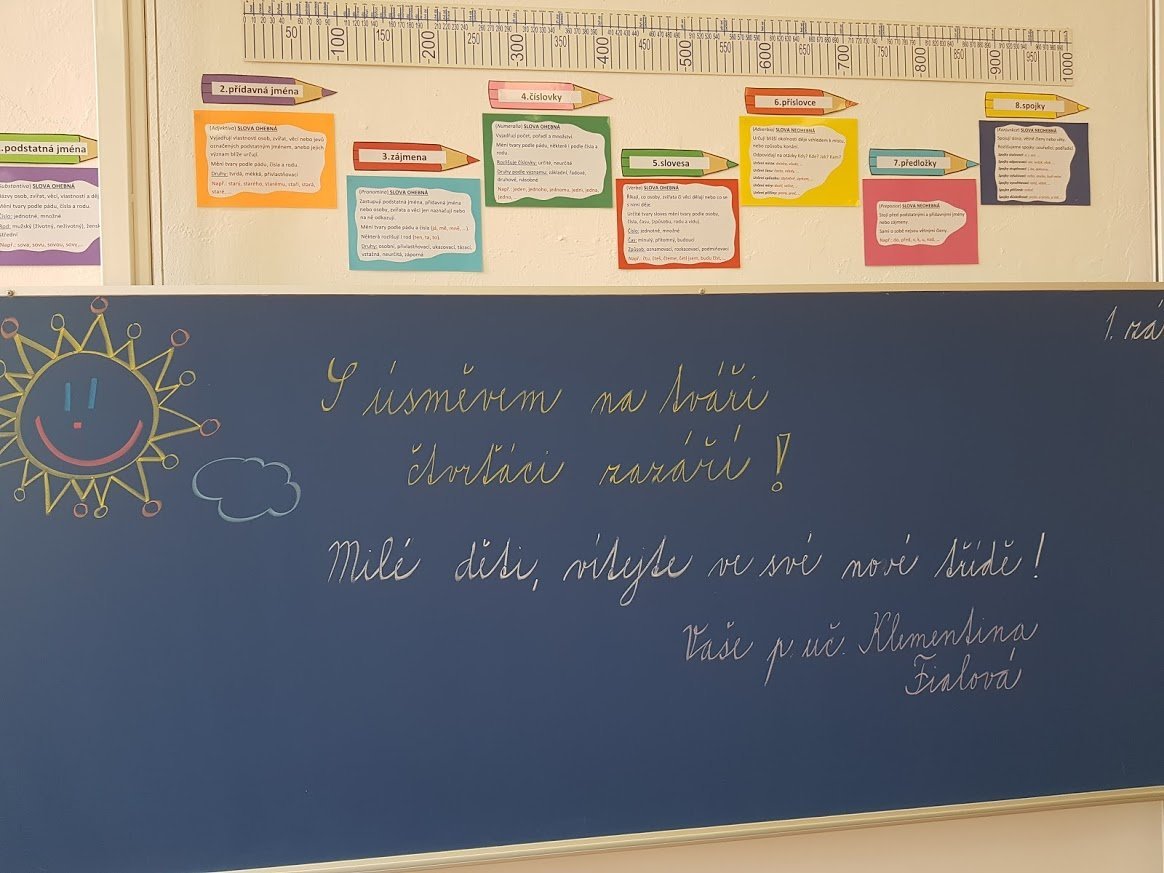 50 100 150 200 250 300 350 400 450 500 550 600 650 700 750 800 850 900 950 1000
.podstatná jména
2.přídavná jména
(Adjektiva) SLOVA OHEBNÁ
Vyjadřují vlastnosti osob, zvířat, věcí nebo jevů
označených podstatným jménem, anebo jejich
význam blíže určují.
Mění tvary podle pádu, čísla a rodu.
Druhy: tvrdá, měkká, přivlastňovací
Např.: starý, starého, starému, staří, stará,
staré...
3.zájmena
(Pronomina) SLOVA OHEBNÁ
Zastupují podstatná jména, přídavná jména
nebo osoby, zvířata a věci jen naznačují nebo
na ně odkazují.
Mění tvary podle pádu a čísla (já, mě, mně, ...)
Některá rozlišují i rod (ten, ta, to).
Druhy: osobní, přivlastňovací, ukazovací, tázací,
vztažná, neurčitá, záporná
4.číslovky
(Numeralia) SLOVA OHEBNÁ
Vyjadřují počet, pořadí a množství.
Mění tvary podle pádu, některé i podle čísla a
rodu.
Rozlišuje číslovky: určité, neurčité
Druhy podle významu: základní, řadové,
druhové, násobné
Např.: jeden, jednoho, jednomu, jedni, jedna,
jedno,...
5.slovesa
(Verba) SLOVA OHEBNÁ
Říkají, co osoby, zvířata či věci dělají nebo co se
s nimi děje.
Určité tvary sloves mění tvary podle osoby,
čísla, času, (způsobu, rodu a vidu).
Číslo: jednotné, množné
Čas: minulý, přítomný, budoucí
Způsob: oznamovací, rozkazovací, podmiňovací
Např.: čtu, čtek, čteme, četl jsem, budu číst,
6.příslovce
(Adverbia) SLOVA NEOHEBNÁ
Určují bližší okolnosti děje vzhledem k místu,
nebo způsobu konání.
Odpovídají na otázky Kdy? Kde? Jak? Kam?
7.předložky
(Prepozice) SLOVA NEOHEBNÁ
Stojí před podstatnými a přídavnými jmény
nebo zájmeny.
Sami o sobě nejsou větnými členy.
Např.: do, před, v, k, u, nad, ...
8.spojky
SLOVA NEOHEBNÁ
Spojují slova, větné členy nebo věty.
Rozlišujeme spojky souřadicí, podřadicí.
Substantiva) SLOVA OHEBNÁ
ázvy osob, zvířat, věcí, vlastností a děj
Mění tvary podle pádu, čísla a rodu.
Číslo: jednotné, množné
Rod: mužský (životný, neživotný), žensk
střední
Např.: sova, sovu, sovou, sovy,...
1. zá
S úsměvem na tváři
čtvrťáci zazáří!
Milé děti, vítejte ve své nové třídě!
Vaše p. uč. Klementina
Fialová